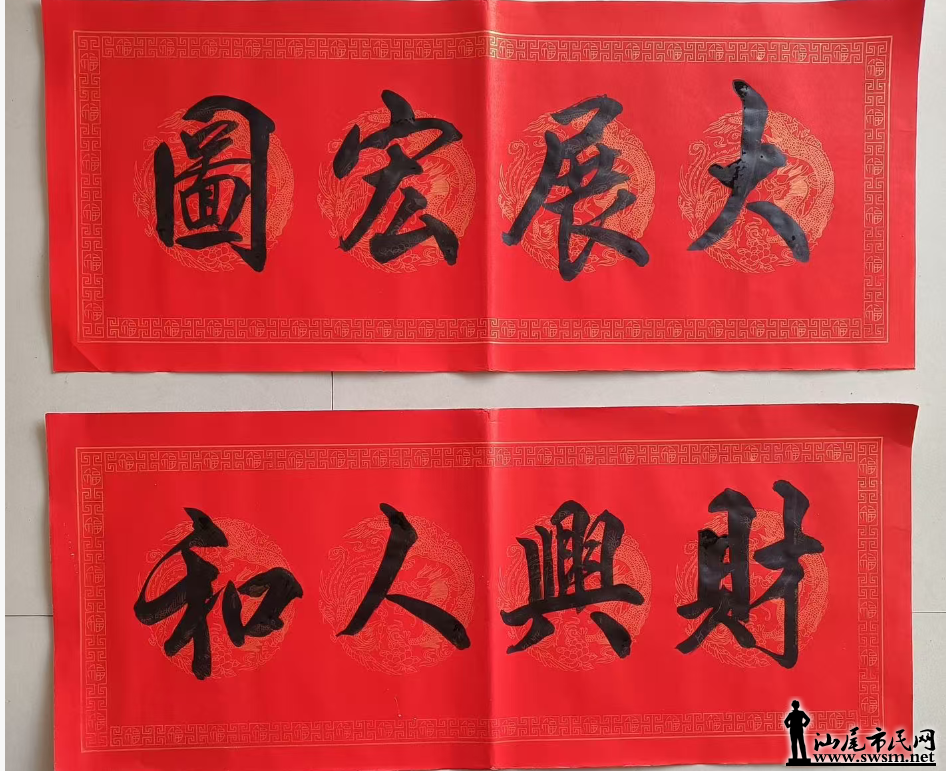 大展宏圖
財興人和
汕尾市民网
www.swsm.net